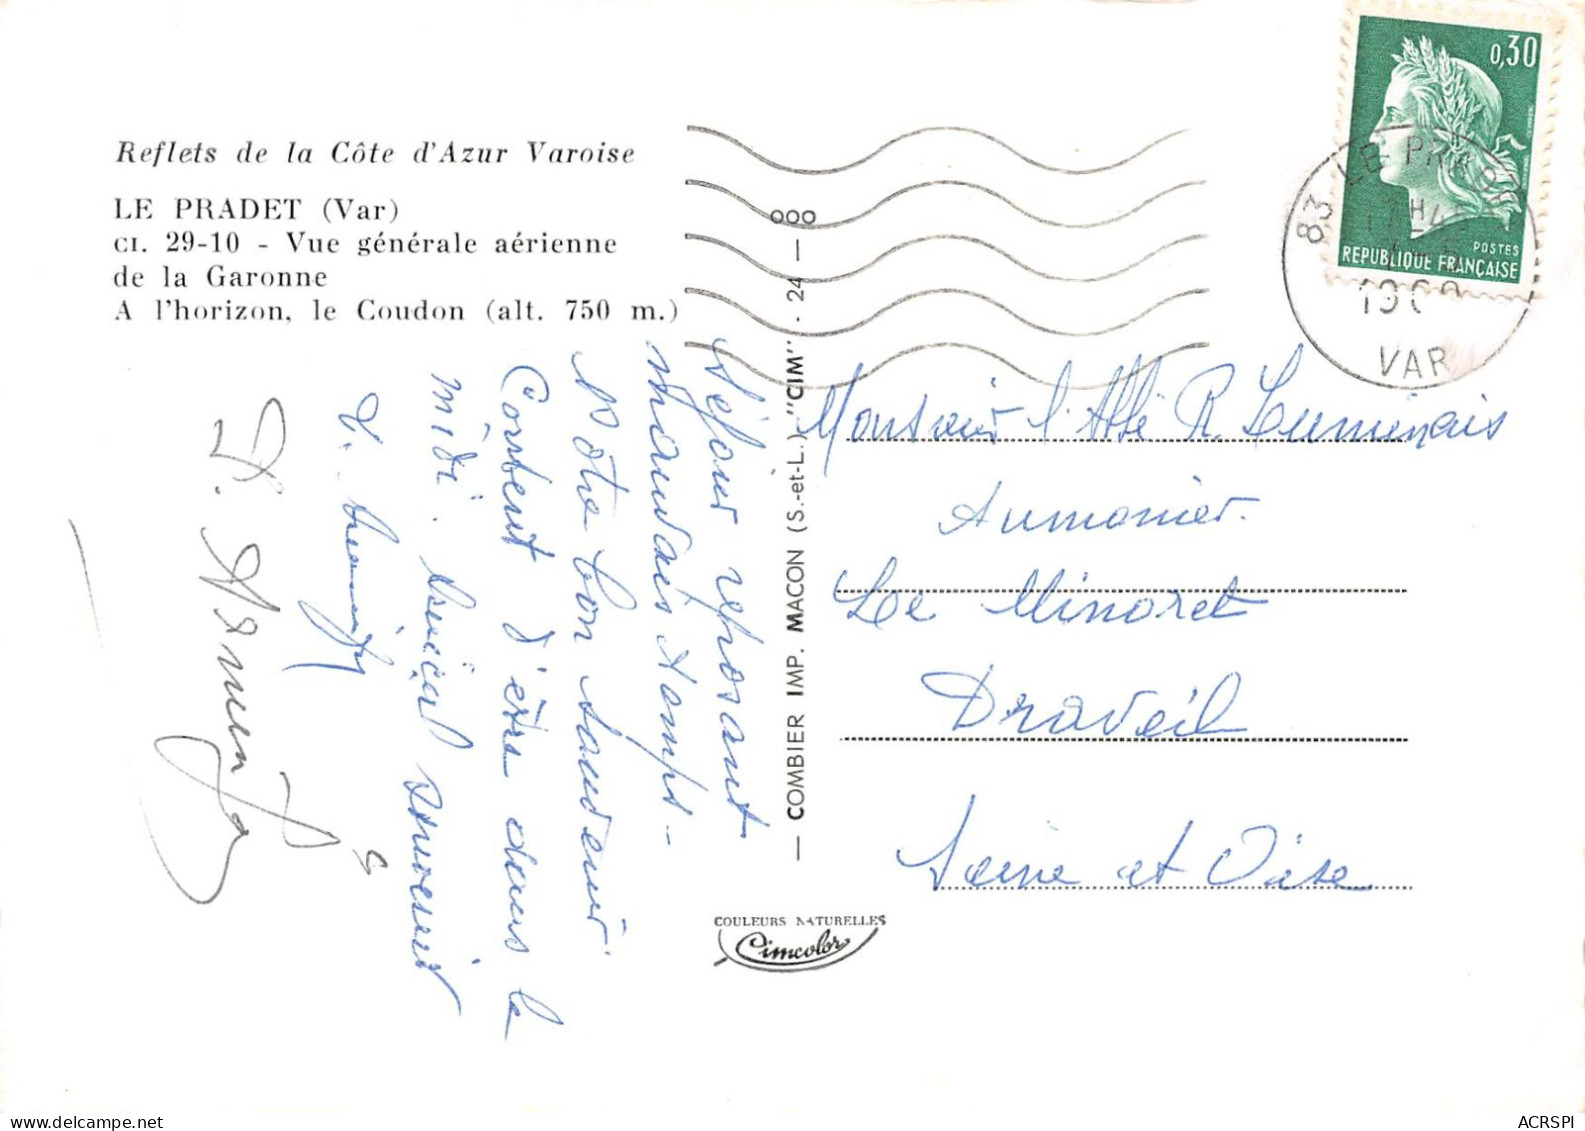 Reflets de la Côte d'Azur Varoise
LE PRADET (Var)
CI. 29-10 - Vue générale aérienne
de la Garonne
A l'horizon, le Coudon (alt. 750 m.)
Séjour reposant
mauvais temps -
Notre bon Samdeur
Content d'être dans le
midi. Amical souvenir
COMBIER IMP. MACON (S.-et-L.) "CIM" . 24 — 000
COULEURS NATURELLES
Cimcolor
0,30
POSTES
REPUBLIQUE FRANÇAISE
83 LE PRADET
VAR
Monsieur l'Abbé R. Lumineais
Aumonier.
Le Minoret
Draveil
Seine et Oise
ACRSPI